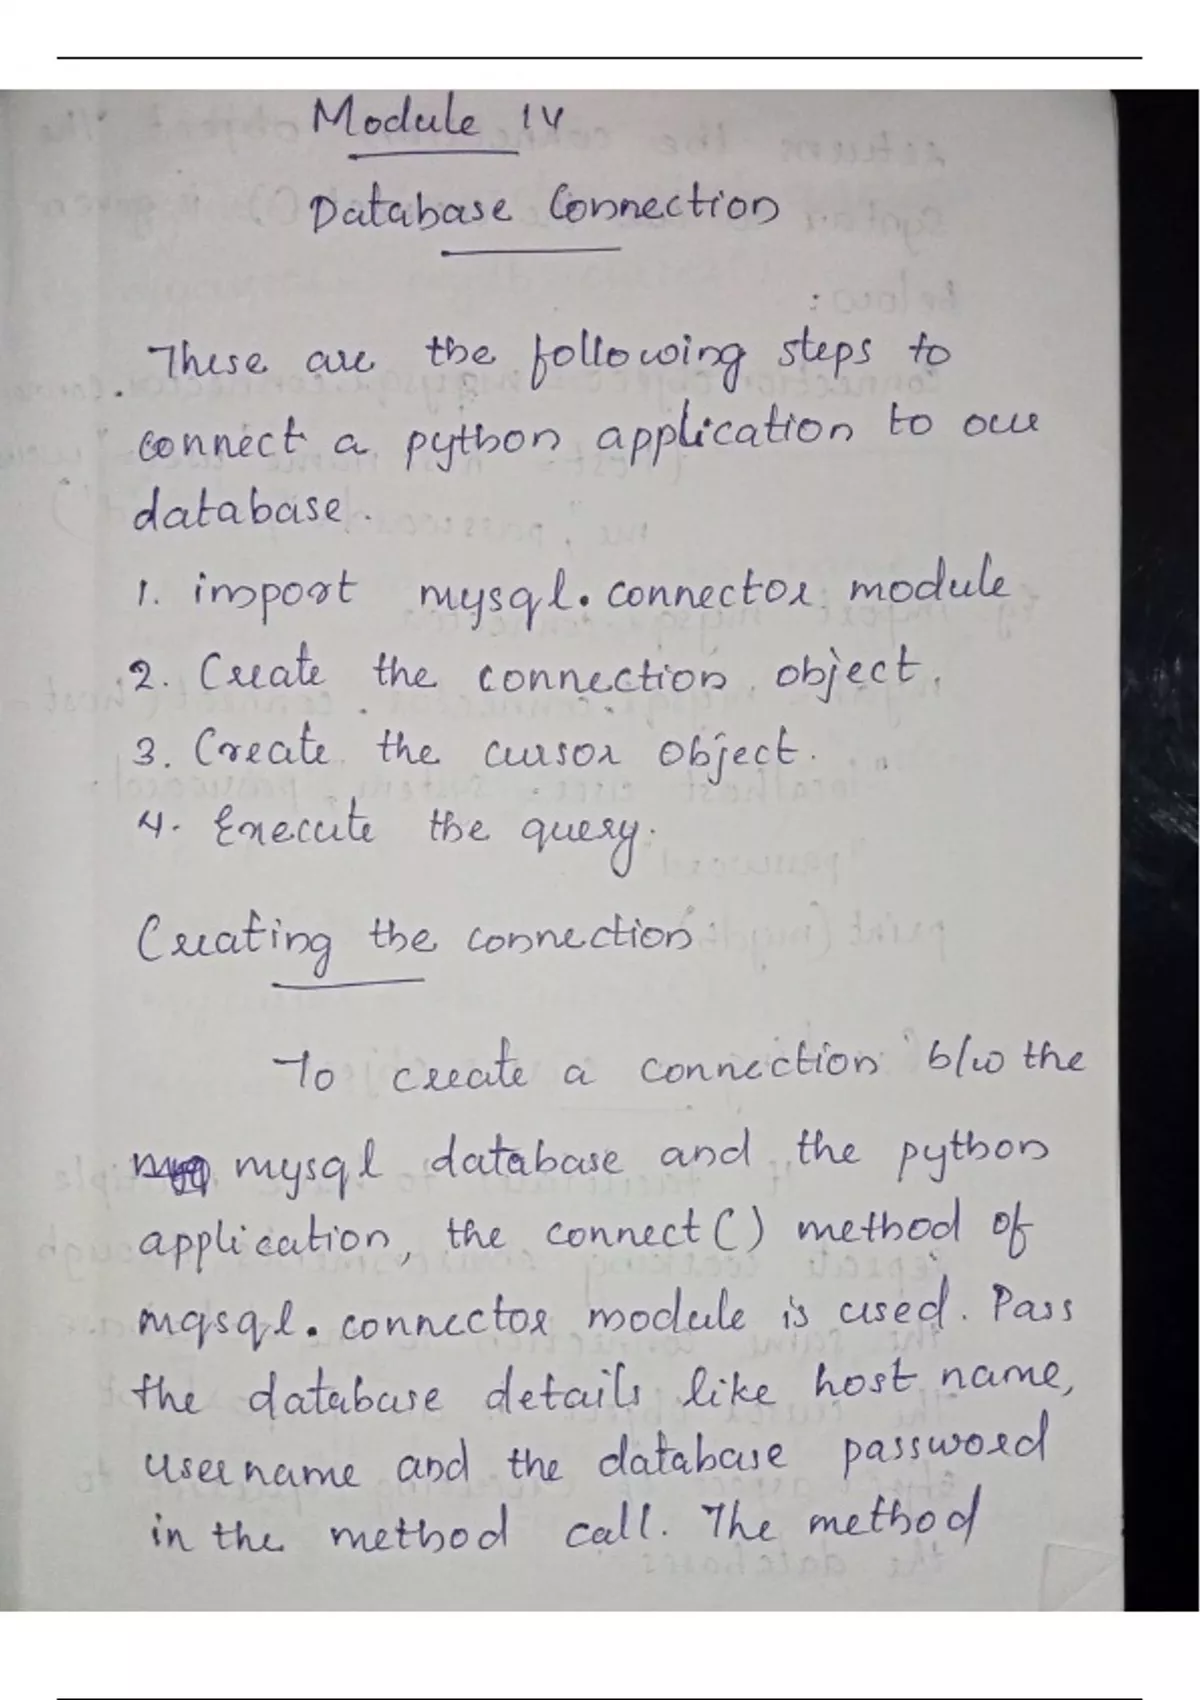 Module IV
Database Connection
These are the following steps to
connect a python application to our
database.
1. import mysql.connector module
2. Create the connection object.
3. Create the cursor object.
4. Execute the query.
Creating the connection
To create a connection b/w the
mysql database and the python
application, the connect() method of
mqsql.connector module is used. Pass
the database details like host name,
username and the database password
in the method call. The method